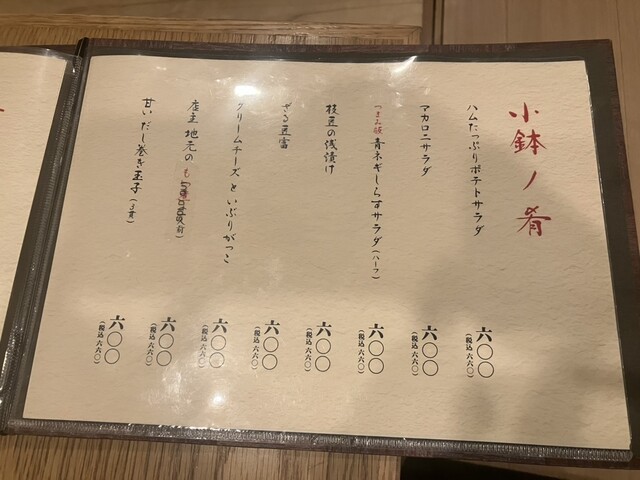 小鉢ノ肴
ハムたっぷりポテトサラダ
六〇〇
(税込 六六〇)
マカロニサラダ
六〇〇
(税込 六六〇)
青ネギしらすサラダ(ハーフ)
六〇〇
(税込 六六〇)
枝豆の浅漬け
六〇〇
(税込 六六〇)
ざる豆富
六〇〇
(税込 六六〇)
クリームチーズといぶりがっこ
六〇〇
(税込 六六〇)
店主 地元の
六〇〇
(税込 六六〇)
甘いだし巻き玉子(3貫)
六〇〇
(税込 六六〇)